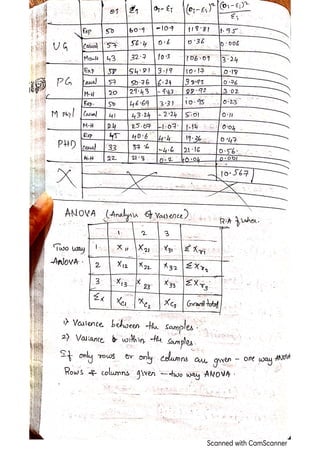 O1 E1 O1-E1 (O1-E1)² (O1-E1)²/E1
UG Exp 50 60.9 -10.9 118.81 1.95
Casual 57 56.4 0.6 0.36 0.006
M-H 43 32.7 10.3 106.09 3.24
PG Exp 58 54.81 3.19 10.17 0.18
Casual 57 50.76 6.24 38.93 0.76
M-H 20 29.43 -9.43 88.92 3.02
M Phil Exp 50 46.69 3.31 10.95 0.23
Casual 41 43.24 -2.24 5.01 0.11
M-H 24 25.07 -1.07 1.14 0.04
PHD Exp 45 40.6 4.4 19.36 0.47
Casual 33 37.6 -4.6 21.16 0.56
M-H 22 21.8 0.2 0.04 0.001
10.567
ANOVA (Analysis of Varience) R.A Fisher.
1 2 3
Two way 1 X11 X21 X31 ΣXr1
ANOVA. 2 X12 X22 X32 ΣXr2
3 X13 X23 X33 ΣXr3
Σx Xc1 Xc2 Xc3 Grand total
1) Varience between the samples
2) Variance within the samples
If only rows or only columns are given - one way ANOVA
Rows & columns given - two way ANOVA.
Scanned with CamScanner